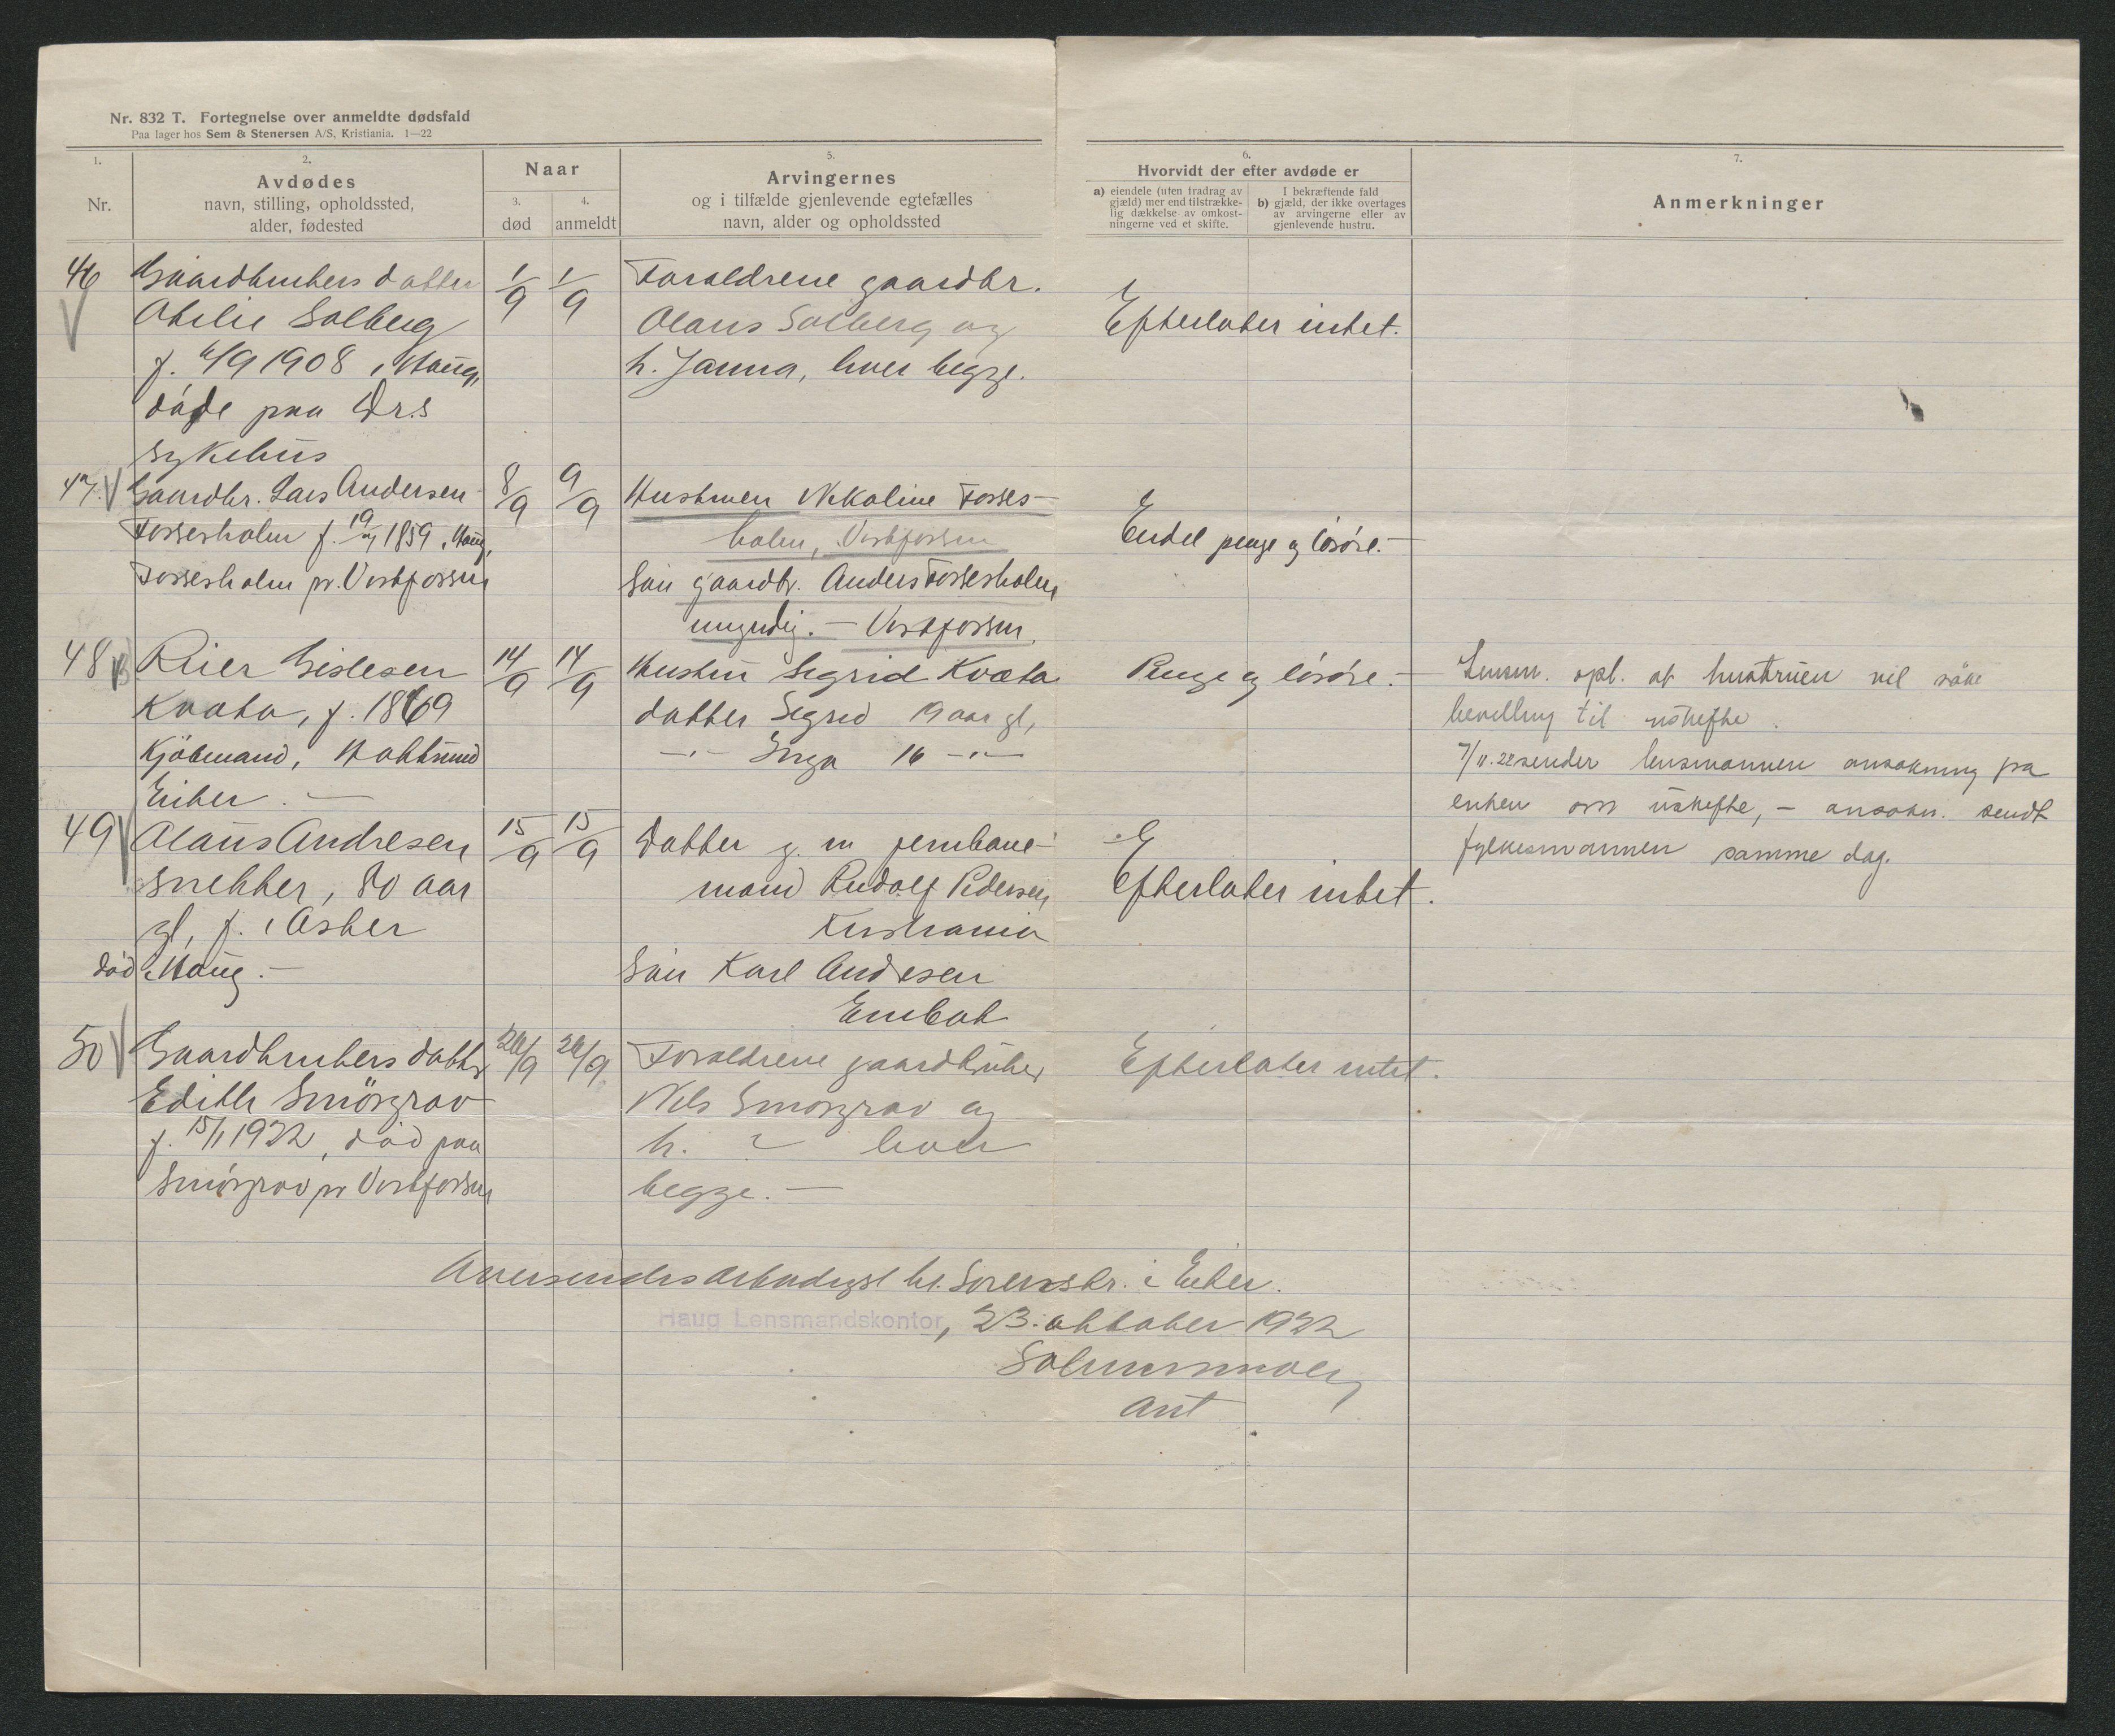 Nr. 832 T. Fortegnelse over anmeldte dødsfald
Paa lager hos Sem & Stenersen A/S, Kristiania. 1—22
1.
Nr.
2.
Avdødes
navn, stilling, opholdssted,
alder, fødested
Naar
3.
død
4.
anmeldt
5.
Arvingernes
og i tilfælde gjenlevende egtefælles
navn, alder og opholdssted
6.
Hvorvidt der efter avdøde er
a) eiendele (uten fradrag av
gjæld) mer end tilstrække-
lig dækkelse av omkost-
ningerne ved et skifte.
I bekræftende fald
b) gjæld, der ikke overtages
av arvingerne eller av
gjenlevende hustru.
7.
Anmerkninger
46
Gaardbrukers datter
Solberg
f. 4/9 1908 i Haug,
døde paa Dr.s
sykehus
1/9
1/9
Foraldrene gaardbr.
Olaus Solberg og
h. Janna, lever begge.
Efterlater intet.
47.
Gaardbr. Lars Andersen
Fossesholm f. 19/ 1859 i Haug,
Fossesholm pr. Vestfossen
8/9
9/9
Hustruen Nikoline Fosses-
holm, Vestfossen
Søn gaardbr. Anders Fossesholm
myndig. — Vestfossen.
Endel penge og løsøre. —
48
Reier Gislesen
Kvata, f. 1869
Kjöbmand, Hokksund
Eiker. —
14/9
14/9
Hustru Sigrid Kvata
datter Sigrid 19 aar gl,
—"— Inga 16 —"—
Penge og løsøre. —
Lensm. opl. at hustruen vil söke
bevilling til uskifte.
7/11.22 sender lensmannen ansökning fra
enken om uskifte, — ansøkn. sendt
fylkesmannen samme dag.
49
Olaus Andresen
snekker, 80 aar
gl, f. i Asker
död i Haug. —
15/9
15/9
Datter g. m jernbane-
mand Rudolf Pedersen
Kristiania
Søn Karl Andresen
Efterlater intet.
50
Gaardbrukers datter
Edith Smörgrav
f. 15/1 1922, död paa
Smörgrav pr Vestfossen
26/9
26/9
Foraldrene gaardbruker
Nils Smörgrav og
h. ? lever
begge. —
Efterlater intet.
Oversendes ærbødigst hr. Sorenskr. i Eiker.
Haug Lensmandskontor, 23. oktober 1922